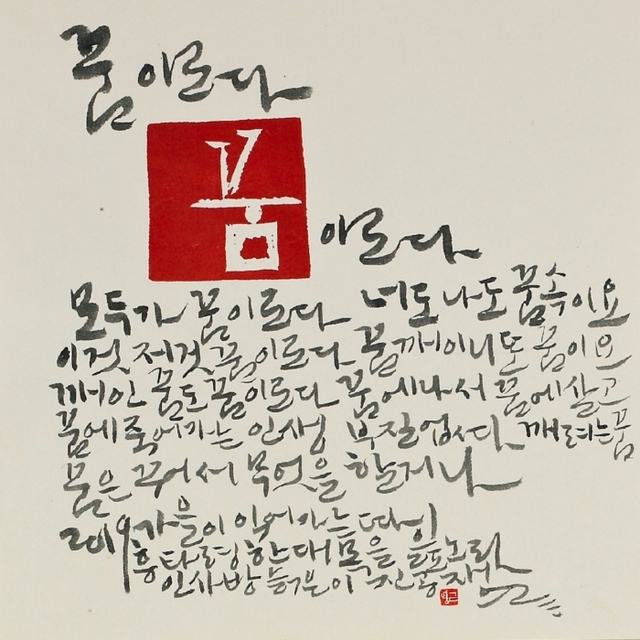 꿈이로다
꿈
이로다
모두가 꿈이로다 너도 나도 꿈속이요
이것 저것 꿈이로다 꿈깨이니 또 꿈이요
깨인 꿈도 꿈이로다 꿈에 나서 꿈에 살고
꿈에 죽어가는 인생 부질없다 깨려는 꿈
꿈은 꾸어서 무엇을 할거나
2019 가을이 익어가는
흥타령 한 대목을
인사방